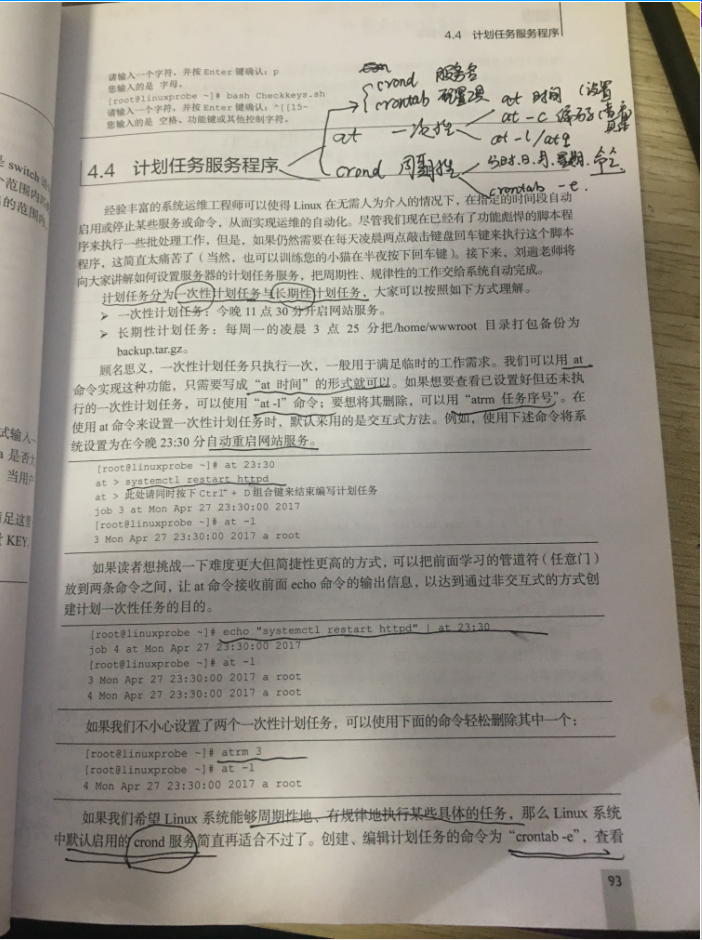 4.4 计划任务服务程序
请输入一个字符，并按 Enter 键确认：p
您输入的是 字母。
[root@linuxprobe ~]# bash Checkkeys.sh
请输入一个字符，并按 Enter 键确认：^[[15~
您输入的是 空格、功能键或其他控制字符。
crond 服务名
crontab 配置项
at 一次性
at 时间（设置
at -c 编码
at -l/atq
crond 周期性
分.时.日.月.星期.命令
crontab -e.
4.4 计划任务服务程序
经验丰富的系统运维工程师可以使得 Linux 在无需人为介入的情况下，在指定的时间段自动
启用或停止某些服务或命令，从而实现运维的自动化。尽管我们现在已经有了功能彪悍的脚本程
序来执行一些批处理工作，但是，如果仍然需要在每天凌晨两点敲击键盘回车键来执行这个脚本
程序，这简直太痛苦了（当然，也可以训练您的小猫在半夜按下回车键）。接下来，刘遄老师将
向大家讲解如何设置服务器的计划任务服务，把周期性、规律性的工作交给系统自动完成。
计划任务分为一次性计划任务与长期性计划任务，大家可以按照如下方式理解。
➢ 一次性计划任务：今晚 11 点 30 分开启网站服务。
➢ 长期性计划任务：每周一的凌晨 3 点 25 分把/home/wwwroot 目录打包备份为
backup.tar.gz。
顾名思义，一次性计划任务只执行一次，一般用于满足临时的工作需求。我们可以用 at
命令实现这种功能，只需要写成“at 时间”的形式就可以。如果想要查看已设置好但还未执
行的一次性计划任务，可以使用“at -l”命令；要想将其删除，可以用“atrm 任务序号”。在
使用 at 命令来设置一次性计划任务时，默认采用的是交互式方法。例如，使用下述命令将系
统设置为在今晚 23:30 分自动重启网站服务。
[root@linuxprobe ~]# at 23:30
at > systemctl restart httpd
at > 此处请同时按下 Ctrl + D 组合键来结束编写计划任务
job 3 at Mon Apr 27 23:30:00 2017
[root@linuxprobe ~]# at -l
3 Mon Apr 27 23:30:00 2017 a root
如果读者想挑战一下难度更大但简捷性更高的方式，可以把前面学习的管道符（任意门）
放到两条命令之间，让 at 命令接收前面 echo 命令的输出信息，以达到通过非交互式的方式创
建计划一次性任务的目的。
[root@linuxprobe ~]# echo "systemctl restart httpd" | at 23:30
job 4 at Mon Apr 27 23:30:00 2017
[root@linuxprobe ~]# at -l
3 Mon Apr 27 23:30:00 2017 a root
4 Mon Apr 27 23:30:00 2017 a root
如果我们不小心设置了两个一次性计划任务，可以使用下面的命令轻松删除其中一个：
[root@linuxprobe ~]# atrm 3
[root@linuxprobe ~]# at -l
4 Mon Apr 27 23:30:00 2017 a root
如果我们希望 Linux 系统能够周期性地、有规律地执行某些具体的任务，那么 Linux 系统
中默认启用的 crond 服务简直再适合不过了。创建、编辑计划任务的命令为“crontab -e”，查看
93